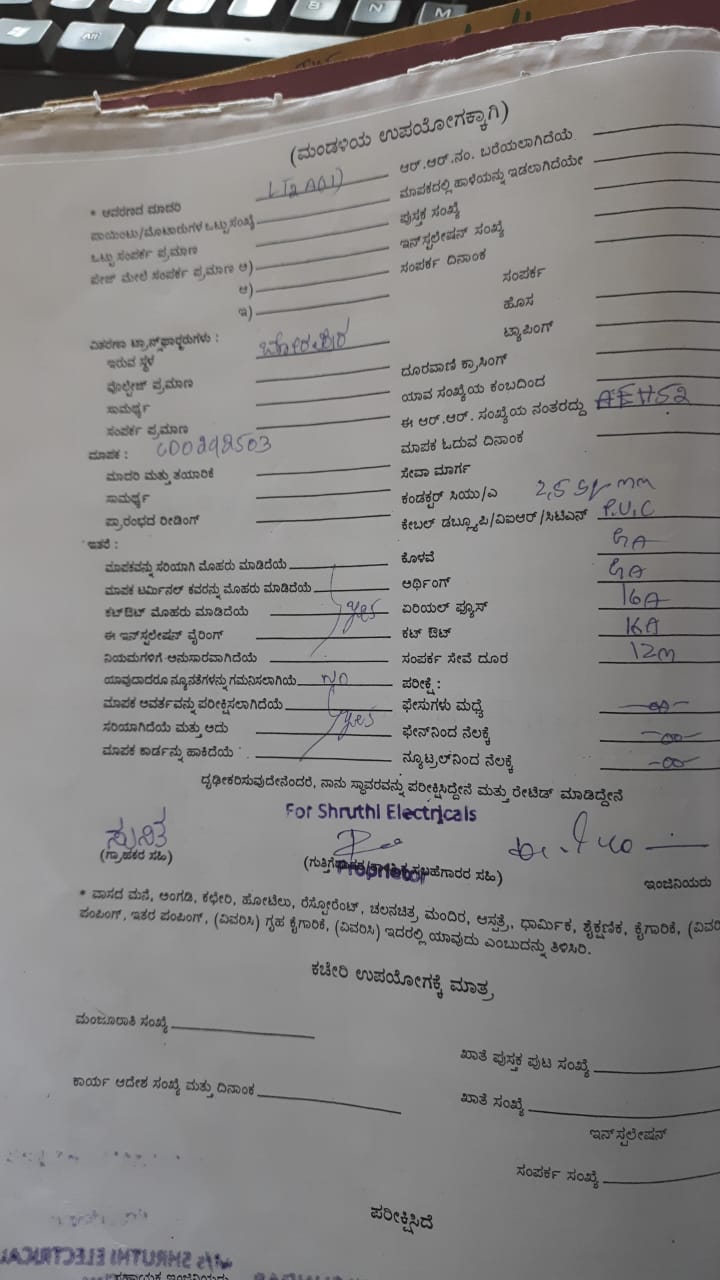 (ಮಂಡಳಿಯ ಉಪಯೋಗಕ್ಕಾಗಿ)
* ಆವರಣದ ಮಾದರಿ
ಪಾಯಿಂಟು/ಮೋಟಾರುಗಳ ಒಟ್ಟು ಸಂಖ್ಯೆ
ಒಟ್ಟು ಸಂಪರ್ಕ ಪ್ರಮಾಣ
ಫೇಜ್ ಮೇಲೆ ಸಂಪರ್ಕ ಪ್ರಮಾಣ ಅ)
ಆ)
ಇ)
ವಿತರಣಾ ಟ್ರಾನ್ಸ್‌ಫಾರ್ಮರುಗಳು :
ಇರುವ ಸ್ಥಳ
ವೋಲ್ಟೇಜ್ ಪ್ರಮಾಣ
ಸಾಮರ್ಥ್ಯ
ಸಂಪರ್ಕ ಪ್ರಮಾಣ
ಮಾಪಕ :
ಮಾದರಿ ಮತ್ತು ತಯಾರಿಕೆ
ಸಾಮರ್ಥ್ಯ
ಪ್ರಾರಂಭದ ರೀಡಿಂಗ್
ಇತರೆ :
ಮಾಪಕವನ್ನು ಸರಿಯಾಗಿ ಮೊಹರು ಮಾಡಿದೆಯೆ
ಮಾಪಕ ಟರ್ಮಿನಲ್ ಕವರನ್ನು ಮೊಹರು ಮಾಡಿದೆಯೆ
ಕಟ್‌ಔಟ್ ಮೊಹರು ಮಾಡಿದೆಯೆ yes
ಈ ಇನ್‌ಸ್ಟಲೇಷನ್ ವೈರಿಂಗ್
ನಿಯಮಗಳಿಗೆ ಅನುಸಾರವಾಗಿದೆಯೆ
ಯಾವುದಾದರೂ ನ್ಯೂನತೆಗಳನ್ನು ಗಮನಿಸಲಾಗಿಯೆ NO
ಮಾಪಕ ಆವರ್ತವನ್ನು ಪರೀಕ್ಷಿಸಲಾಗಿದೆಯೆ
ಸರಿಯಾಗಿದೆಯೆ ಮತ್ತು ಅದು yes
ಮಾಪಕ ಕಾರ್ಡನ್ನು ಹಾಕಿದೆಯೆ
ಆರ್.ಆರ್.ನಂ. ಬರೆಯಲಾಗಿದೆಯೆ
ಮಾಪಕದಲ್ಲಿ ಹಾಳೆಯನ್ನು ಇಡಲಾಗಿದೆಯೇ
ಪುಸ್ತಕ ಸಂಖ್ಯೆ
ಇನ್‌ಸ್ಟಲೇಷನ್ ಸಂಖ್ಯೆ
ಸಂಪರ್ಕ ದಿನಾಂಕ
ಸಂಪರ್ಕ
ಹೊಸ
ಟ್ಯಾಪಿಂಗ್
ದೂರವಾಣಿ ಕ್ರಾಸಿಂಗ್
ಯಾವ ಸಂಖ್ಯೆಯ ಕಂಬದಿಂದ
ಈ ಆರ್.ಆರ್. ಸಂಖ್ಯೆಯ ನಂತರದ್ದು AEH52
ಮಾಪಕ ಓದುವ ದಿನಾಂಕ
ಸೇವಾ ಮಾರ್ಗ
ಕಂಡಕ್ಟರ್ ಸಿಯು/ಎ 2,5 Sq mm
ಕೇಬಲ್ ಡಬ್ಲ್ಯೂಪಿ/ವಿಐಆರ್/ಸಿಟಿಎನ್ P.V.C
ಕೊಳವೆ
ಅರ್ಥಿಂಗ್
ಏರಿಯಲ್ ಫ್ಯೂಸ್ 16A
ಕಟ್ ಔಟ್ 16A
ಸಂಪರ್ಕ ಸೇವೆ ದೂರ 12m
ಪರೀಕ್ಷೆ :
ಫೇಸುಗಳು ಮಧ್ಯೆ
ಫೇಸ್‌ನಿಂದ ನೆಲಕ್ಕೆ
ನ್ಯೂಟ್ರಲ್‌ನಿಂದ ನೆಲಕ್ಕೆ
ದೃಢೀಕರಿಸುವುದೇನೆಂದರೆ, ನಾನು ಸ್ಥಾವರವನ್ನು ಪರೀಕ್ಷಿಸಿದ್ದೇನೆ ಮತ್ತು ರೇಟಿಡ್ ಮಾಡಿದ್ದೇನೆ
For Shruthi Electricals
ಸುನಿತ
(ಗ್ರಾಹಕರ ಸಹಿ)
Proprietor
ಇಂಜಿನಿಯರು
* ವಾಸದ ಮನೆ, ಅಂಗಡಿ, ಕಛೇರಿ, ಹೋಟೆಲು, ರೆಸ್ಟೋರೆಂಟ್, ಚಲನಚಿತ್ರ ಮಂದಿರ, ಆಸ್ಪತ್ರೆ, ಧಾರ್ಮಿಕ, ಶೈಕ್ಷಣಿಕ, ಕೈಗಾರಿಕೆ,
ಪಂಪಿಂಗ್, ಇತರ ಪಂಪಿಂಗ್, (ವಿವರಿಸಿ) ಗೃಹ ಕೈಗಾರಿಕೆ, (ವಿವರಿಸಿ) ಇದರಲ್ಲಿ ಯಾವುದು ಎಂಬುದನ್ನು ತಿಳಿಸಿರಿ.
ಕಚೇರಿ ಉಪಯೋಗಕ್ಕೆ ಮಾತ್ರ
ಮಂಜೂರಾತಿ ಸಂಖ್ಯೆ
ಕಾರ್ಯ ಆದೇಶ ಸಂಖ್ಯೆ ಮತ್ತು ದಿನಾಂಕ
ಖಾತೆ ಪುಸ್ತಕ ಪುಟ ಸಂಖ್ಯೆ
ಖಾತೆ ಸಂಖ್ಯೆ
ಇನ್‌ಸ್ಟಲೇಷನ್
ಸಂಪರ್ಕ ಸಂಖ್ಯೆ
ಪರೀಕ್ಷಿಸಿದೆ